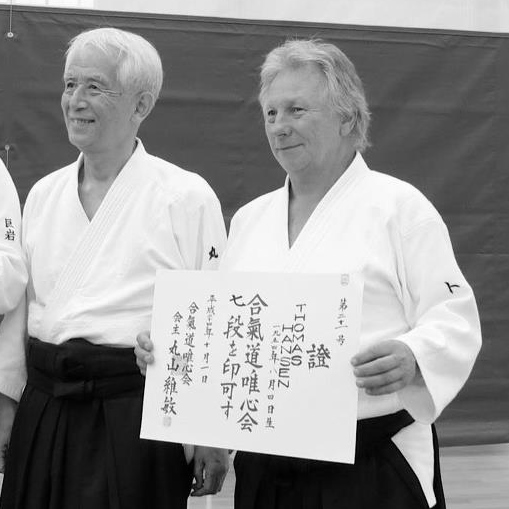 巨岩
丸
ト
第二十一号
證
THOMAS
HANSEN
一九五四年八月四日生
合氣道唯心会
七段を印可す
平成二十年十月一日
合氣道唯心会
会主 丸山維敏